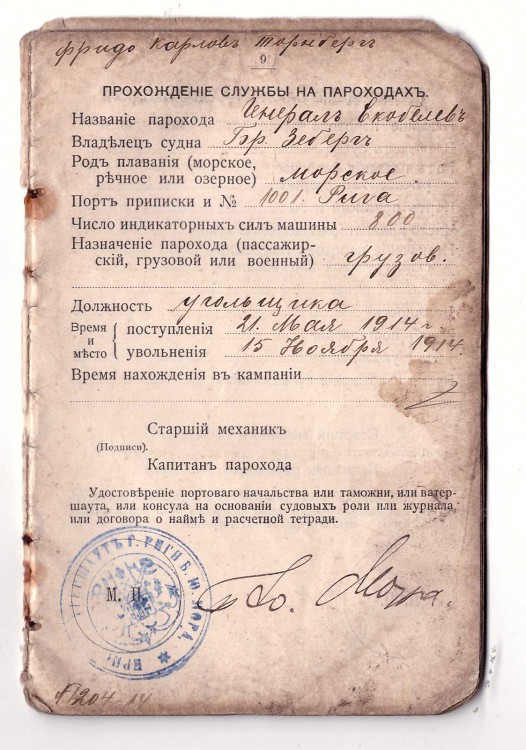 Фридо Карловъ Торнбергъ
9
ПРОХОЖДЕНІЕ СЛУЖБЫ НА ПАРОХОДАХЪ.
Названіе парохода Генералъ Скобелевъ
Владѣлецъ судна Бр. Зебергъ
Родъ плаванія (морское,
рѣчное или озерное) морское.
Портъ приписки и № 1001. Рига
Число индикаторныхъ силъ машины 800
Назначеніе парохода (пассажир-
скій, грузовой или военный) грузов.
Должность угольщика
Время и мѣсто
поступленія 21. Мая 1914 г
увольненія 15 Ноября 1914.
Время нахожденія въ кампаніи
Старшій механикъ
(Подписи).
Капитанъ парохода
Удостовѣреніе портоваго начальства или таможни, или ватер-
шаута, или консула на основаніи судовыхъ роли или журнала,
или договора о наймѣ и расчетной тетради.
М. П.
№1204-14